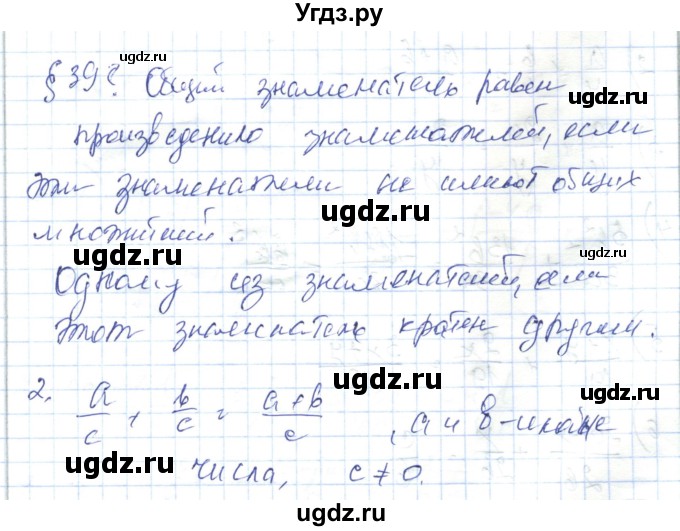 Угдз.ру
§ 39? Общий знаменатель равен
произведению знаменателей, если
эти знаменатели не имеют общих
множителей.
Одному из знаменателей, если
этот знаменатель кратен другим.
2. a/c + b/c = a+b/c , a и b - целые
числа, c ≠ 0.
ugdz.ru
ugdz.ru
ugdz.ru
ugdz.ru
ugdz.ru
ugdz.ru
ugdz.ru
ugdz.ru
ugdz.ru
ugdz.ru
ugdz.ru